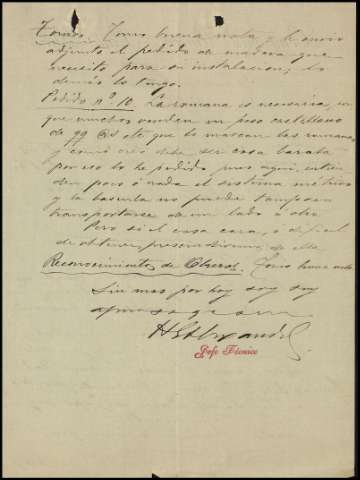 Tornos. Tomo buena nota y le
adjunto el pedido de madera que
necesito para su instalacion; lo
demás lo tengo.
Pedido nº 10. La romana es necesaria, por
que muchos venden un peso castellano
de 99 que lo marcan las romanas
y como creo debe ser cosa barata
por eso lo he pedido pues aqui, entien
den poco ó nada el sistema métrico
y la bascula no puede tampoco
transportarse de un lado á otro.
Pero si es cosa cara, ó dificil
de obtener, prescindiremos de ella
Reconocimientos de Obreros. Tomo buena nota.
Sin mas por hoy soy soy
Jefe Técnico